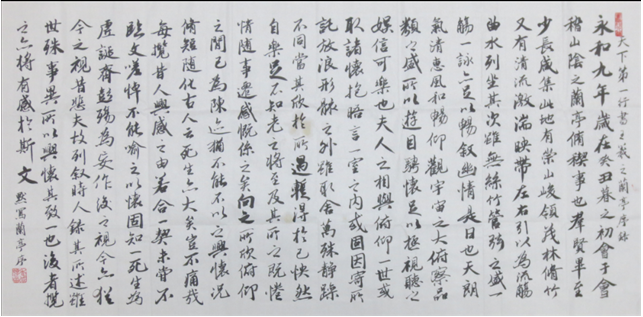 天下第一行書王羲之蘭亭序
永和九年歲在癸丑暮春之初會于會
稽山陰之蘭亭脩稧事也群賢畢至
少長咸集此地有崇山峻領茂林脩竹
又有清流激湍映帶左右引以為流觴
曲水列坐其次雖無絲竹管弦之盛一
觴一詠亦足以暢叙幽情是日也天朗
氣清惠風和暢仰觀宇宙之大俯察品
類之盛所以遊目騁懷足以極視聽之
娛信可樂也夫人之相與俯仰一世或
取諸懷抱晤言一室之內或因寄所
託放浪形骸之外雖取舍萬殊靜躁
不同當其欣於所遇輙得於己怏然
自樂足不知老之將至及其所之既惓
情隨事遷感慨係之矣向之所欣俯仰
之間已為陳迹猶不能不以之興懷況
脩短隨化古人云死生亦大矣豈不痛哉
每攬昔人興感之由若合一契未嘗不
臨文嗟悼不能喻之以懷固知一死生為
虛誕齊彭殤為妄作後之視今亦猶
今之視昔悲夫故列叙時人錄其所述雖
世殊事異所以興懷其致一也後者攬
之亦將有感於斯文 默寫蘭亭序